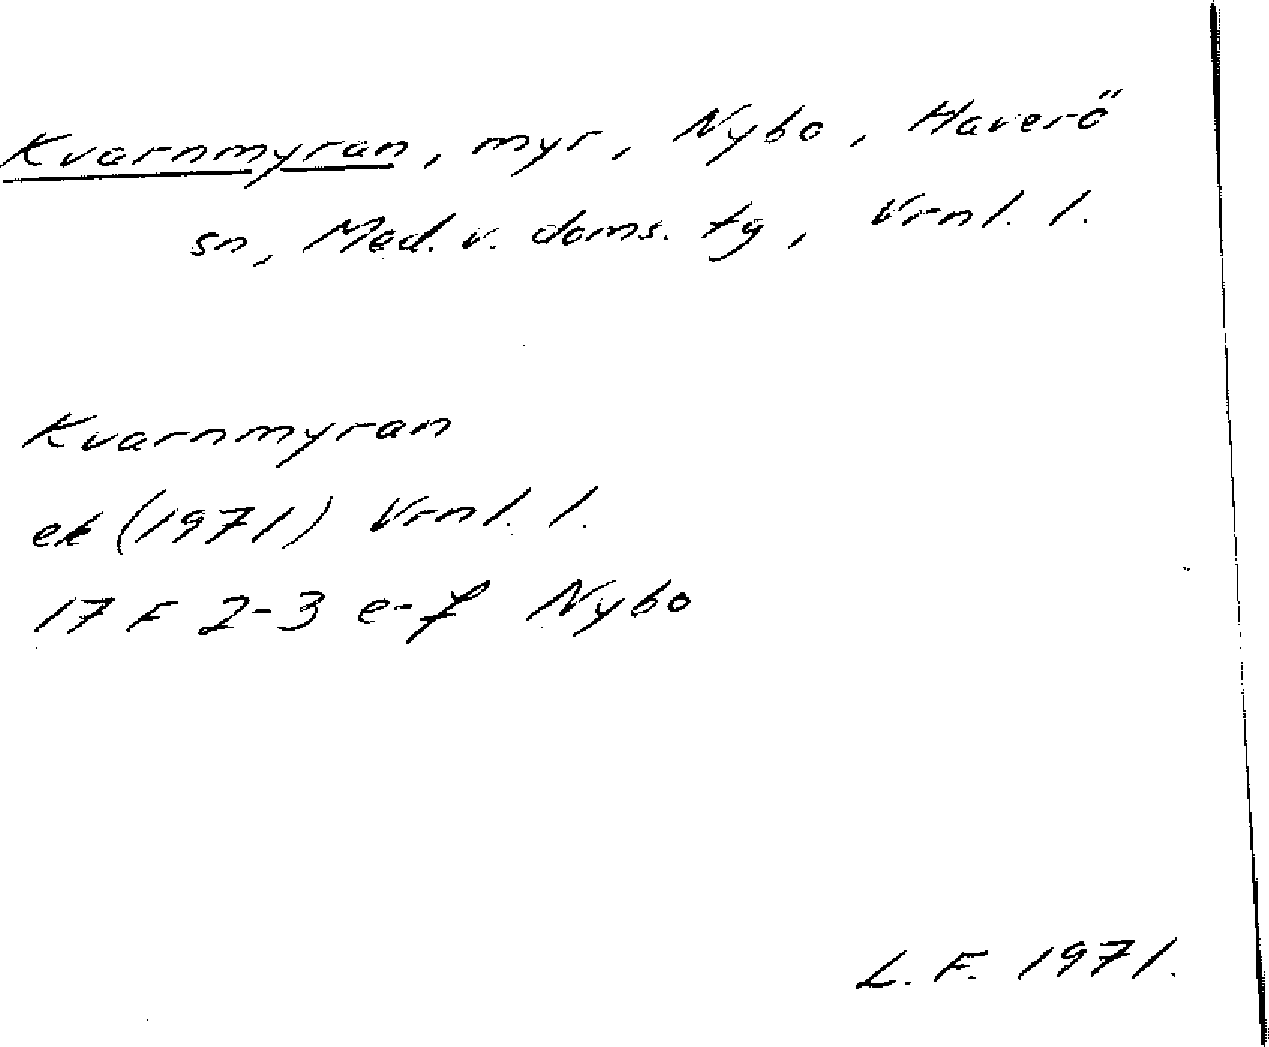 Kvarnmyran, myr, Nybo, Haverö
sn, Med. v. doms. tg, Vrnl. l.
Kvarnmyran
ek (1971) Vrnl. l.
17 F 2-3 e-f Nybo
L. F. 1971.